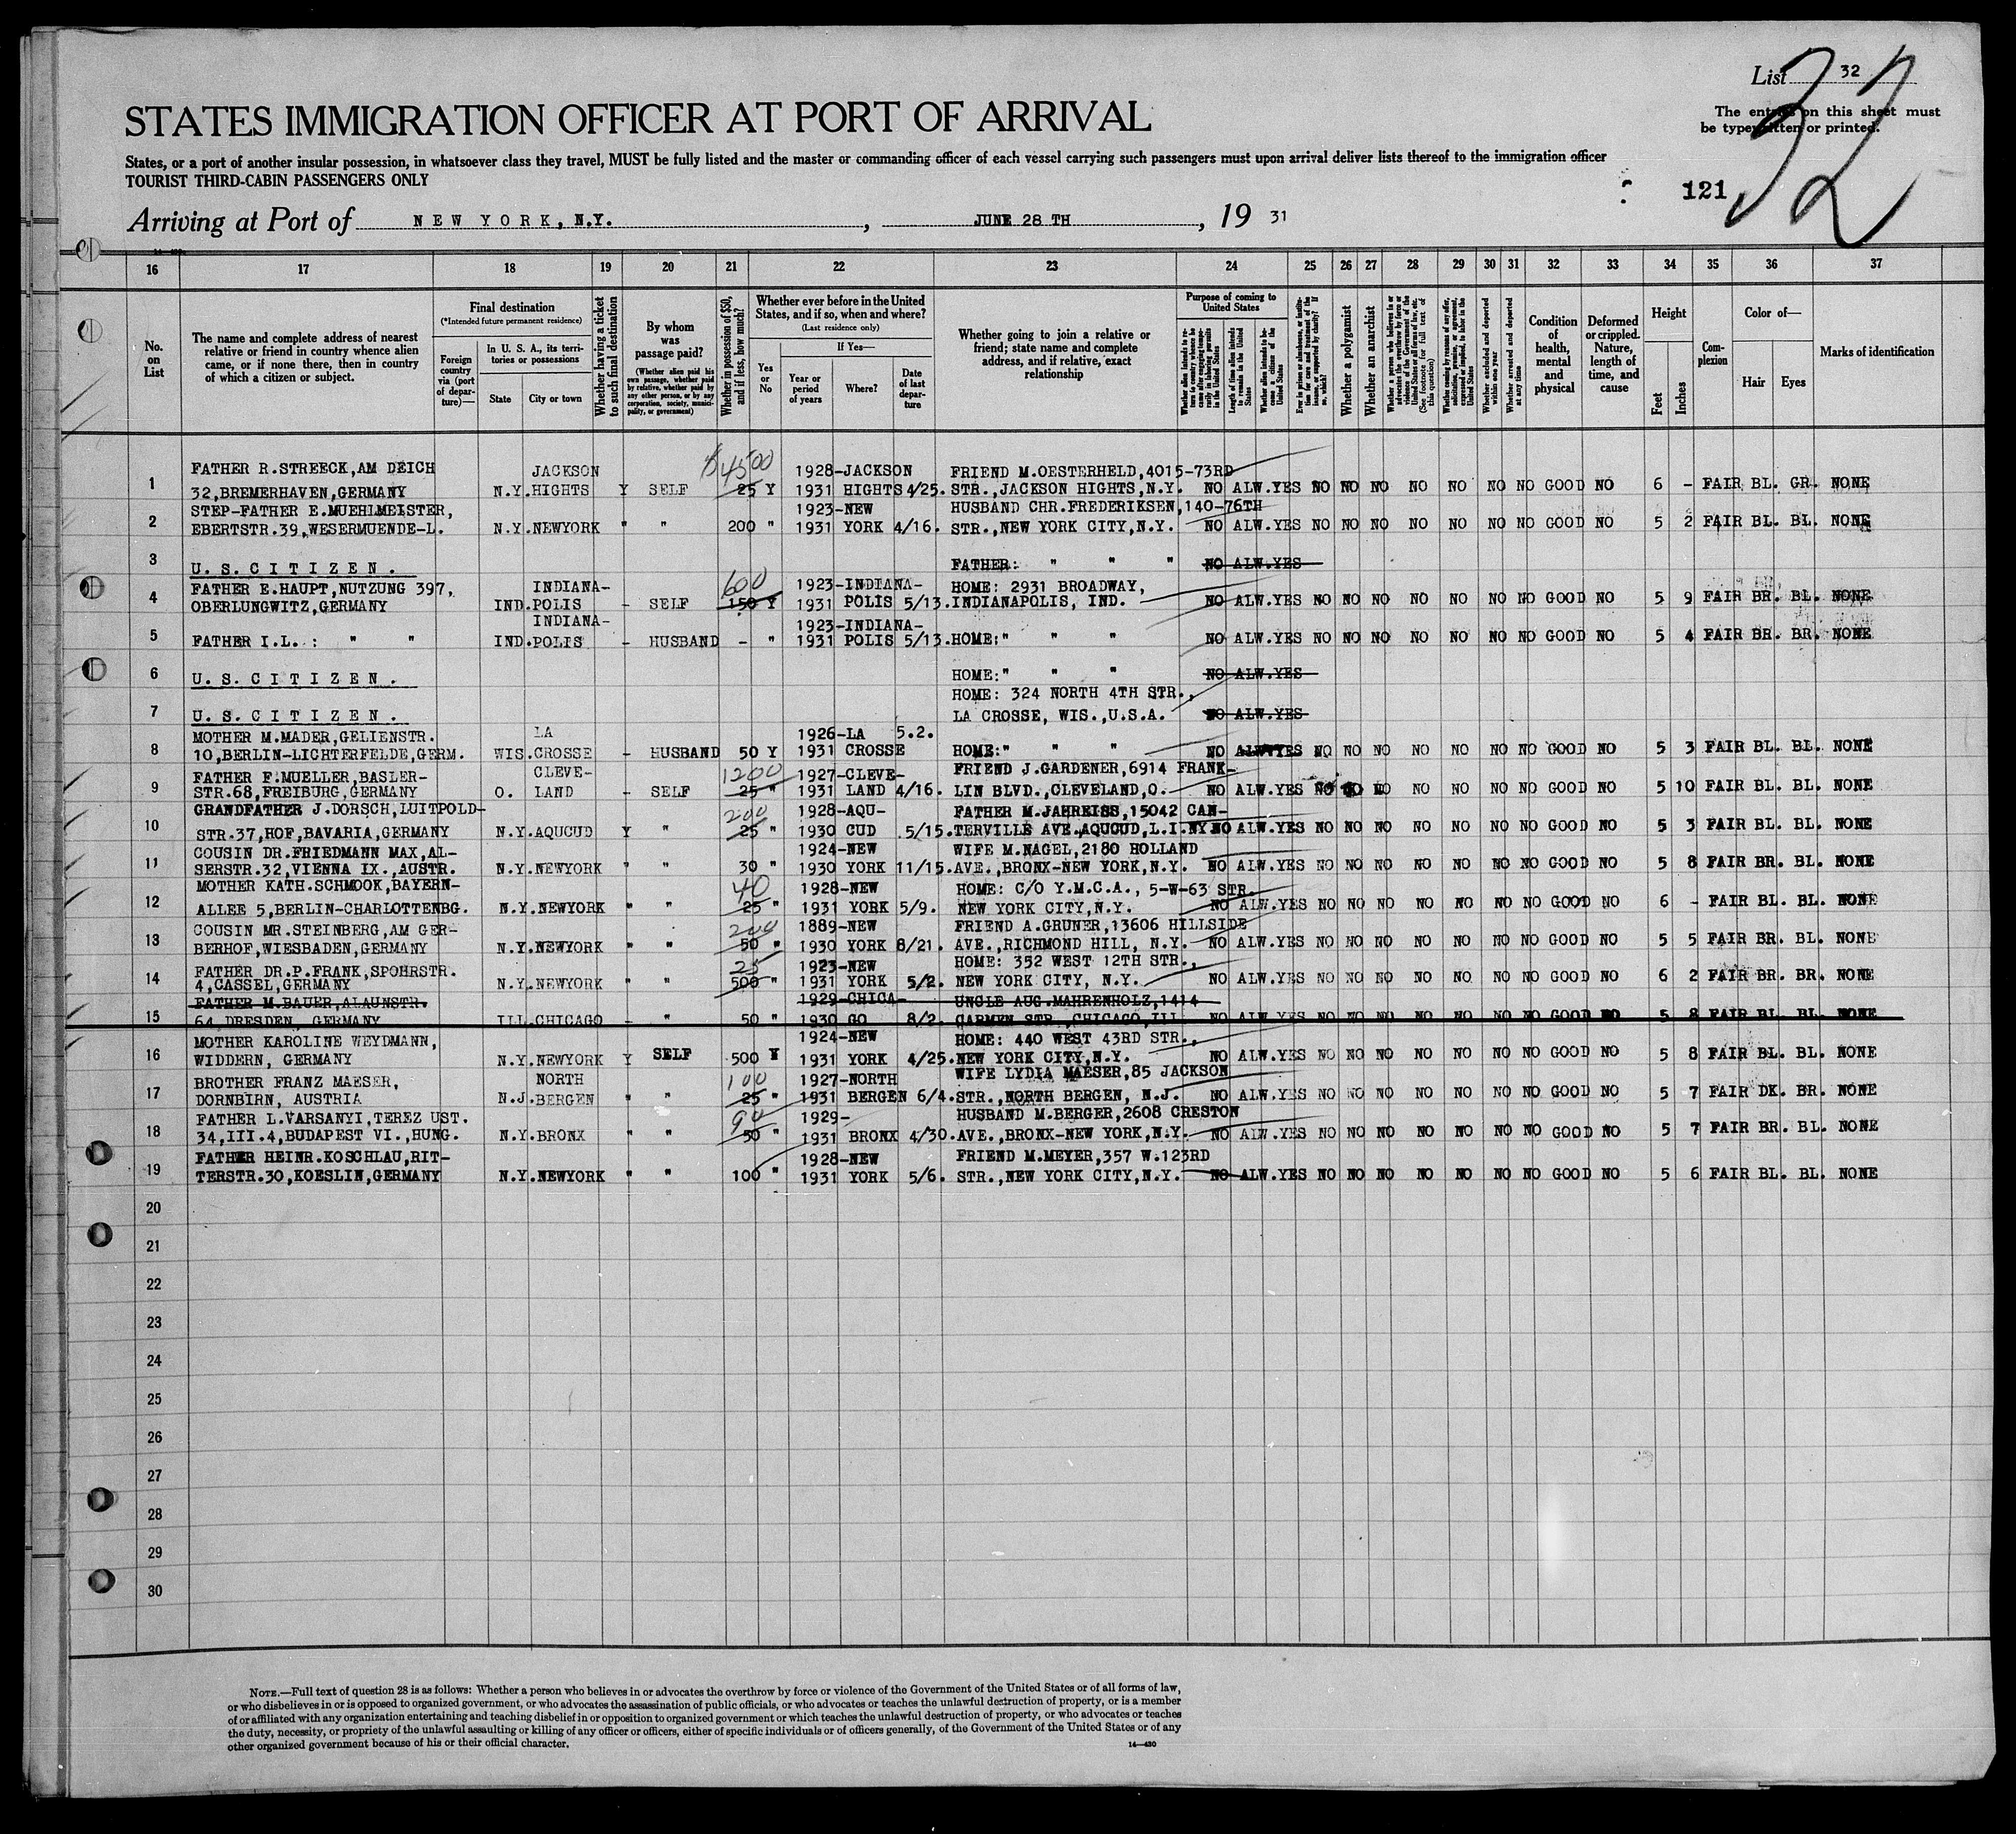 List 32
32
The entries on this sheet must
be typewritten or printed.
STATES IMMIGRATION OFFICER AT PORT OF ARRIVAL
States, or a port of another insular possession, in whatsoever class they travel, MUST be fully listed and the master or commanding officer of each vessel carrying such passengers must upon arrival deliver lists thereof to the immigration officer
TOURIST THIRD-CABIN PASSENGERS ONLY
121
Arriving at Port of NEW YORK, N.Y. , JUNE 28 TH , 19 31
16 17 18 19 20 21 22 23 24 25 26 27 28 29 30 31 32 33 34 35 36 37
No. on List
The name and complete address of nearest relative or friend in country whence alien came, or if none there, then in country of which a citizen or subject.
Final destination
(*Intended future permanent residence)
Foreign country via (port of departure)—
In U. S. A., its territories or possessions
State
City or town
Whether having a ticket to such final destination
By whom was passage paid?
(Whether alien paid his own passage, whether paid by relative, whether paid by any other person, or by any corporation, society, municipality, or government)
Whether in possession of $50, and if less, how much?
Whether ever before in the United States, and if so, when and where?
(Last residence only)
Yes or No
If Yes—
Year or period of years
Where?
Date of last departure
Whether going to join a relative or friend; state name and complete address, and if relative, exact relationship
Purpose of coming to United States
Whether alien intends to return to country whence he came after engaging temporarily in laboring pursuits in the United States
Length of time alien intends to remain in the United States
Whether alien intends to become a citizen of the United States
Ever in prison or almshouse, or institution for care and treatment of the insane, or supported by charity? If so, which?
Whether a polygamist
Whether an anarchist
Whether a person who believes in or advocates the overthrow by force or violence of the Government of the United States or all forms of law, etc. (See footnote for full text of this question)
Whether coming by reason of any offer, solicitation, promise, or agreement, expressed or implied, to labor in the United States
Whether excluded and deported within one year
Whether arrested and deported at any time
Condition of health, mental and physical
Deformed or crippled. Nature, length of time, and cause
Height
Feet
Inches
Complexion
Color of—
Hair
Eyes
Marks of identification
FATHER R.STREECK,AM DEICH JACKSON $4500 1928-JACKSON FRIEND M.OESTERHELD,4015-73RD
1 32,BREMERHAVEN,GERMANY N.Y.HIGHTS Y SELF 25 Y 1931 HIGHTS 4/25. STR.,JACKSON HIGHTS,N.Y. NO ALW.YES NO NO NO NO NO NO NO GOOD NO 6 - FAIR BL. GR. NONE
STEP-FATHER E.MUEHLMEISTER, 1923-NEW HUSBAND CHR.FREDERIKSEN,140-76TH
2 EBERTSTR.39,WESERMUENDE-L. N.Y.NEWYORK " " 200 " 1931 YORK 4/16. STR.,NEW YORK CITY,N.Y. NO ALW.YES NO NO NO NO NO NO NO GOOD NO 5 2 FAIR BL. BL. NONE
3 U.S.CITIZEN. FATHER: " " " NO ALW.YES
FATHER E.HAUPT,NUTZUNG 397, INDIANA- 600 1923-INDIANA- HOME: 2931 BROADWAY,
4 OBERLUNGWITZ,GERMANY IND.POLIS - SELF 150 Y 1931 POLIS 5/13. INDIANAPOLIS, IND. NO ALW.YES NO NO NO NO NO NO NO GOOD NO 5 9 FAIR BR. BL. NONE
INDIANA- 1923-INDIANA-
5 FATHER I.L. : " " IND.POLIS - HUSBAND - " 1931 POLIS 5/13. HOME:" " " NO ALW.YES NO NO NO NO NO NO NO GOOD NO 5 4 FAIR BR. BR. NONE
6 U.S.CITIZEN. HOME:" " " NO ALW.YES
HOME: 324 NORTH 4TH STR.,
7 U.S.CITIZEN. LA CROSSE, WIS.,U.S.A. NO ALW.YES
MOTHER M.MADER,GELIENSTR. LA 1926-LA 5.2.
8 10,BERLIN-LICHTERFELDE,GERM. WIS.CROSSE - HUSBAND 50 Y 1931 CROSSE HOME:" " " NO ALW.YES NO NO NO NO NO NO NO GOOD NO 5 3 FAIR BL. BL. NONE
FATHER F.MUELLER,BASLER- CLEVE- 1200 1927-CLEVE- FRIEND J.GARDENER,6914 FRANK-
9 STR.68,FREIBURG,GERMANY O. LAND - SELF 25 " 1931 LAND 4/16. LIN BLVD.,CLEVELAND,O. NO ALW.YES NO NO NO NO NO NO NO GOOD NO 5 10 FAIR BL. BL. NONE
GRANDFATHER J.DORSCH,LUITPOLD- 200 1928-AQU- FATHER M.JAHREISS,15042 CAN-
10 STR.37,HOF,BAVARIA,GERMANY N.Y.AQUCUD Y " 25 " 1930 CUD 5/15. TERVILLE AVE.AQUCUD,L.I.NY NO ALW.YES NO NO NO NO NO NO NO GOOD NO 5 3 FAIR BL. BL. NONE
COUSIN DR.FRIEDMANN MAX,AL- 1924-NEW WIFE M.NAGEL,2180 HOLLAND
11 SERSTR.32,VIENNA IX.,AUSTR. N.Y.NEWYORK " " 30 " 1930 YORK 11/15. AVE.,BRONX-NEW YORK,N.Y. NO ALW.YES NO NO NO NO NO NO NO GOOD NO 5 8 FAIR BR. BL. NONE
MOTHER KATH.SCHMOOK,BAYERN- 40 1928-NEW HOME: C/O Y.M.C.A., 5-W-63 STR.
12 ALLEE 5,BERLIN-CHARLOTTENBG. N.Y.NEWYORK " " 25 " 1931 YORK 5/9. NEW YORK CITY,N.Y. NO ALW.YES NO NO NO NO NO NO NO GOOD NO 6 - FAIR BL. BL. NONE
COUSIN MR.STEINBERG,AM GER- 200 1889-NEW FRIEND A.GRUNER,13606 HILLSIDE
13 BERHOF,WIESBADEN,GERMANY N.Y.NEWYORK " " 50 " 1930 YORK 8/21. AVE.,RICHMOND HILL, N.Y. NO ALW.YES NO NO NO NO NO NO NO GOOD NO 5 5 FAIR BR. BL. NONE
FATHER DR.P.FRANK,SPOHRSTR. 25 1923-NEW HOME: 352 WEST 12TH STR.,
14 4,CASSEL,GERMANY N.Y.NEWYORK " " 500 " 1931 YORK 5/2. NEW YORK CITY, N.Y. NO ALW.YES NO NO NO NO NO NO NO GOOD NO 6 2 FAIR BR. BR. NONE
FATHER M.BAUER,ALAUNSTR. 1929-CHICA- UNCLE AUG.MAHRENHOLZ,1414
15 64,DRESDEN, GERMANY ILL.CHICAGO - " 50 " 1930 GO 8/2. CARMEN STR.,CHICAGO,ILL NO ALW.YES NO NO NO NO NO NO NO GOOD NO 5 8 FAIR BL. BL. NONE
MOTHER KAROLINE WEYDMANN, 1924-NEW HOME: 440 WEST 43RD STR.,
16 WIDDERN, GERMANY N.Y.NEWYORK Y SELF 500 Y 1931 YORK 4/25. NEW YORK CITY,N.Y. NO ALW.YES NO NO NO NO NO NO NO GOOD NO 5 8 FAIR BL. BL. NONE
BROTHER FRANZ MAESER, NORTH 100 1927-NORTH WIFE LYDIA MAESER,85 JACKSON
17 DORNBIRN, AUSTRIA N.J.BERGEN " " 25 " 1931 BERGEN 6/4. STR.,NORTH BERGEN, N.J. NO ALW.YES NO NO NO NO NO NO NO GOOD NO 5 7 FAIR DK. BR. NONE
FATHER L.VARSANYI,TEREZ UST. 90 1929- HUSBAND M.BERGER,2608 CRESTON
18 34,III.4,BUDAPEST VI.,HUNG. N.Y.BRONX " " 50 " 1931 BRONX 4/30. AVE.,BRONX-NEW YORK,N.Y. NO ALW.YES NO NO NO NO NO NO NO GOOD NO 5 7 FAIR BR. BL. NONE
FATHER HEINR.KOSCHLAU,RIT- 1928-NEW FRIEND M.MEYER,357 W.123RD
19 TERSTR.30,KOESLIN,GERMANY N.Y.NEWYORK " " 100 " 1931 YORK 5/6. STR.,NEW YORK CITY,N.Y. NO ALW.YES NO NO NO NO NO NO NO GOOD NO 5 6 FAIR BL. BL. NONE
20
21
22
23
24
25
26
27
28
29
30
NOTE.—Full text of question 28 is as follows: Whether a person who believes in or advocates the overthrow by force or violence of the Government of the United States or of all forms of law,
or who disbelieves in or is opposed to organized government, or who advocates the assassination of public officials, or who advocates or teaches the unlawful destruction of property, or is a member
of or affiliated with any organization entertaining and teaching disbelief in or opposition to organized government or which teaches the unlawful destruction of property, or who advocates or teaches
the duty, necessity, or propriety of the unlawful assaulting or killing of any officer or officers, either of specific individuals or of officers generally, of the Government of the United States or of any
other organized government because of his or their official character.
14—430